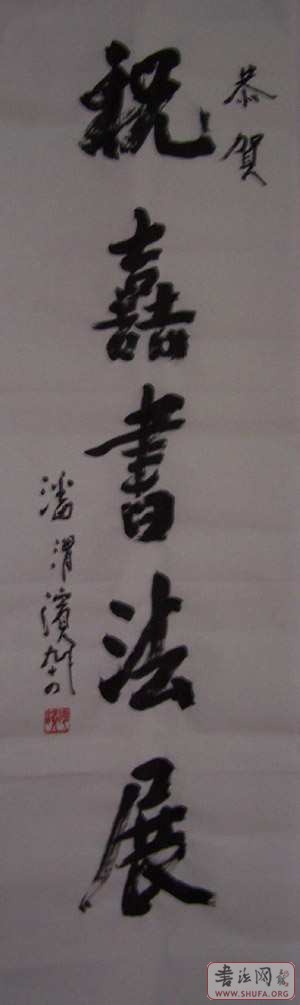 恭贺
祝嚞書法展
潘渭濱
書法网
WWW.SHUFA.ORG